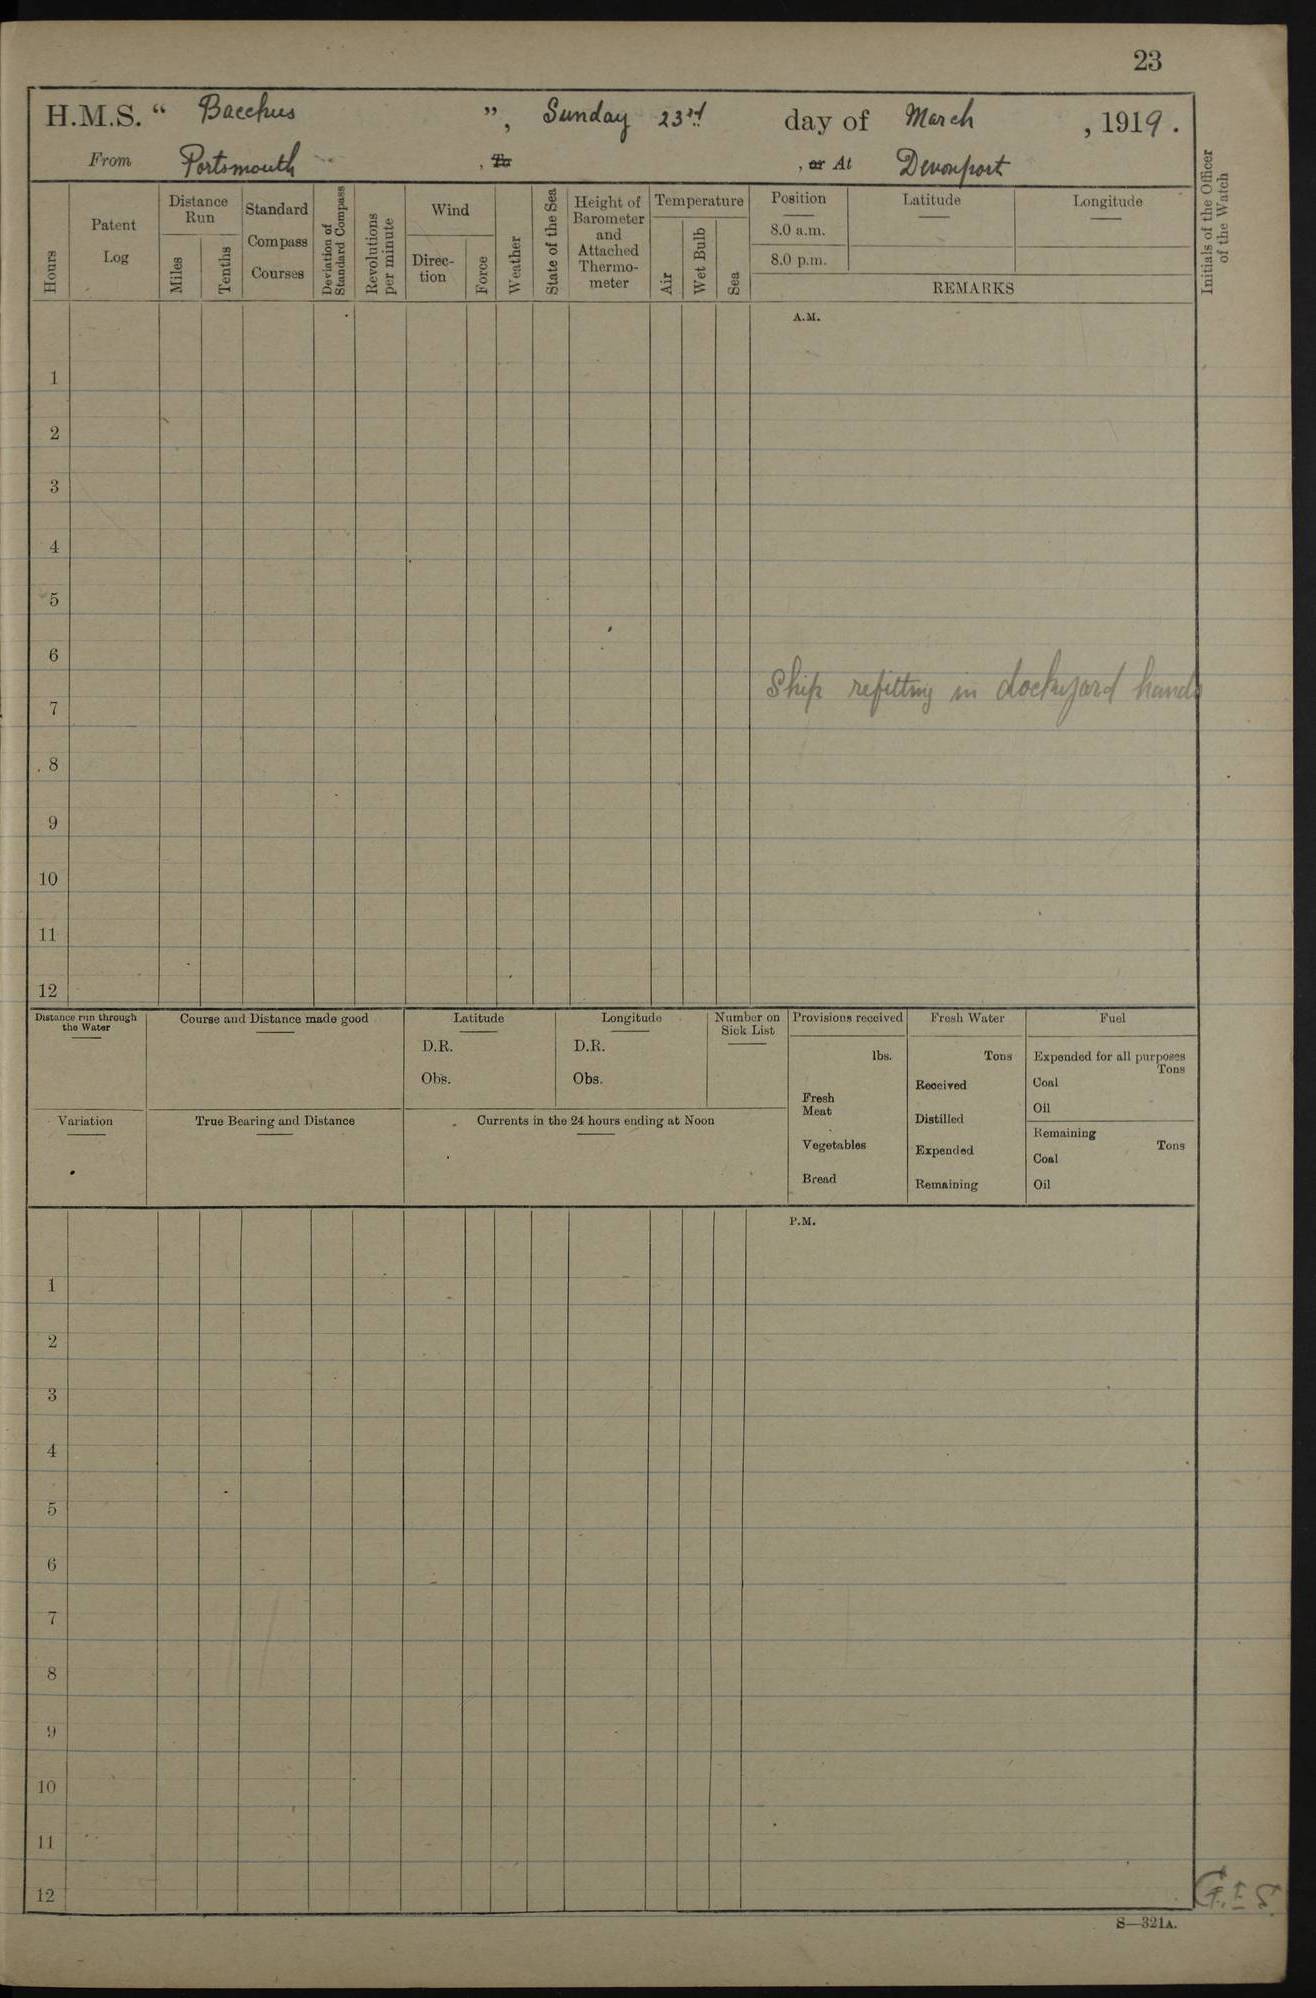 23
H.M.S. “ Bacchus ”, Sunday 23rd day of March , 1919.
From Portsmouth , To , or At Devonport
Hours
Patent Log
Distance Run
Miles
Tenths
Standard Compass Courses
Deviation of Standard Compass
Revolutions per minute
Wind
Direc-tion
Force
Weather
State of the Sea
Height of Barometer and Attached Thermo-meter
Temperature
Air
Wet Bulb
Sea
Position
8.0 a.m.
8.0 p.m.
Latitude
Longitude
REMARKS
Initials of the Officer of the Watch
A.M.
1
2
3
4
5
6
Ship refitting in dockyard hands
7
8
9
10
11
12
Distance run through the Water
Course and Distance made good
Latitude
D.R.
Obs.
Longitude
D.R.
Obs.
Number on Sick List
Provisions received
lbs.
Fresh Meat
Vegetables
Bread
Fresh Water
Tons
Received
Distilled
Expended
Remaining
Fuel
Expended for all purposes
Tons
Coal
Oil
Remaining
Tons
Coal
Oil
Variation
True Bearing and Distance
Currents in the 24 hours ending at Noon
P.M.
1
2
3
4
5
6
7
8
9
10
11
12
S—321A.